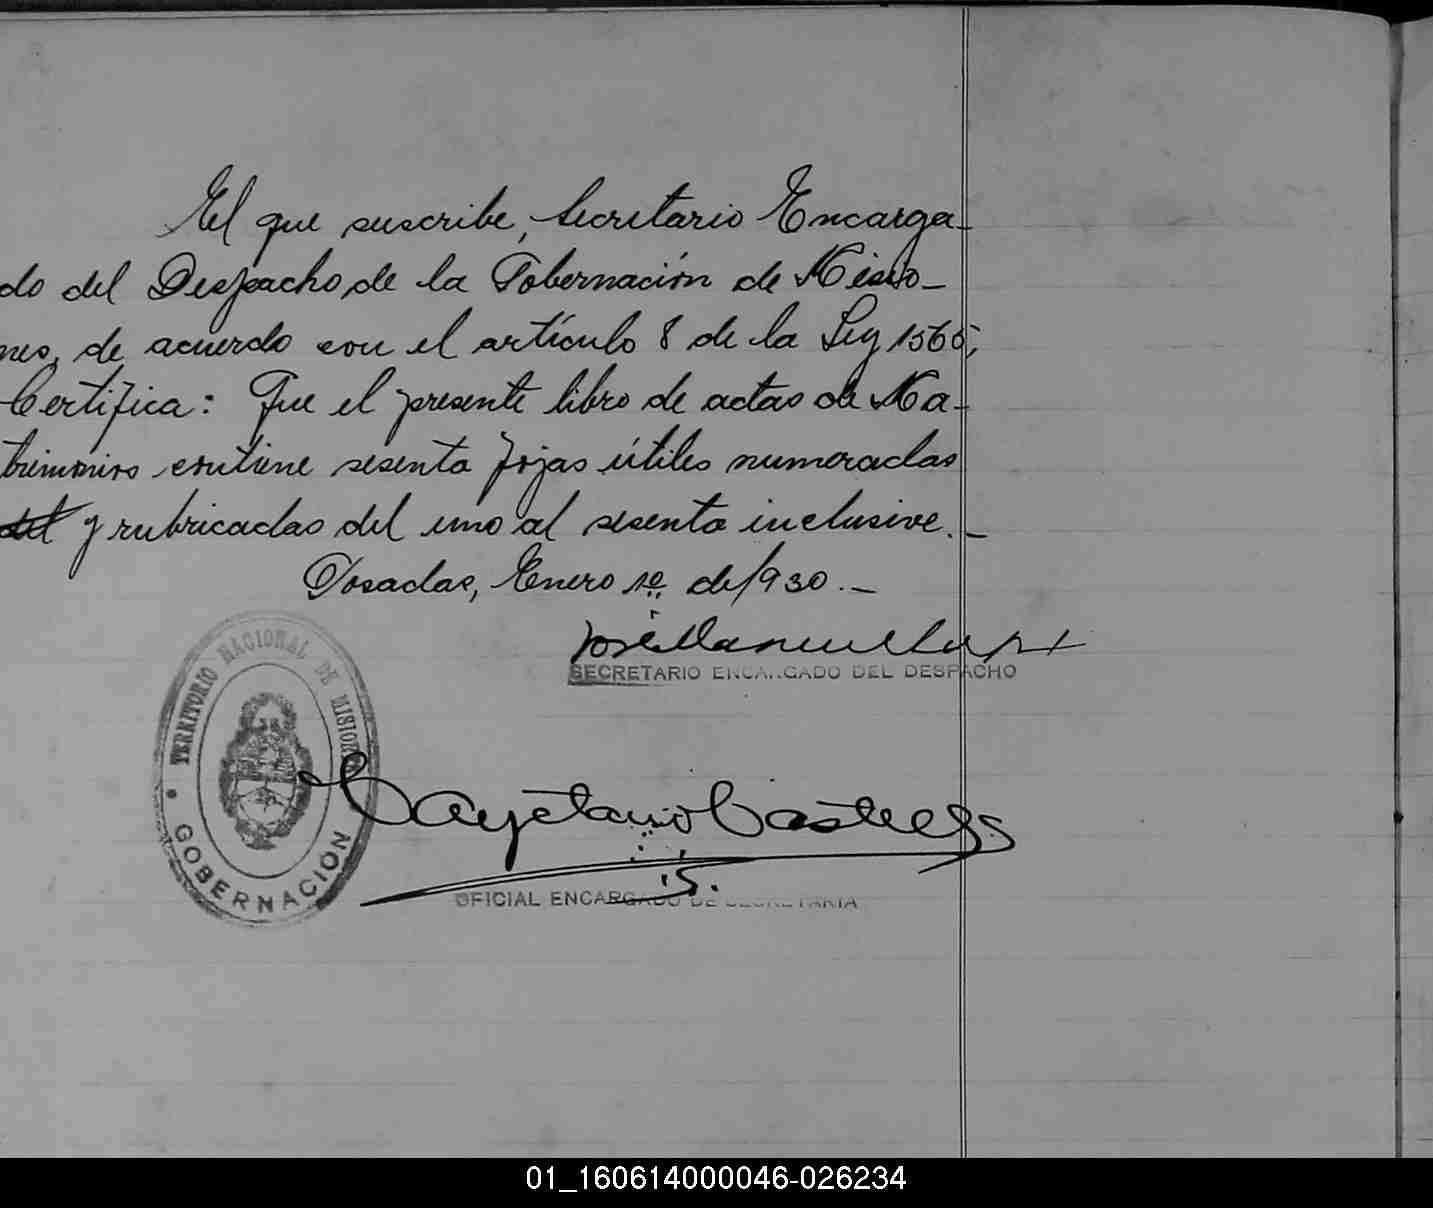 El que suscribe, Secretario Encarga-
do del Despacho, de la Gobernación de Misio-
nes, de acuerdo con el artículo 8 de la Ley 1565,
Certifica: Que el presente libro de actas de Ma-
trimonios contiene sesenta fojas útiles numeradas
del y rubricadas del uno al sesenta inclusive._
Posadas, Enero 1º de 1930._
José Manuel
SECRETARIO ENCARGADO DEL DESPACHO
TERRITORIO NACIONAL DE MISIONES
GOBERNACIÓN
Cayetano Castells
OFICIAL ENCARGADO DE SECRETARIA
01_160614000046-026234